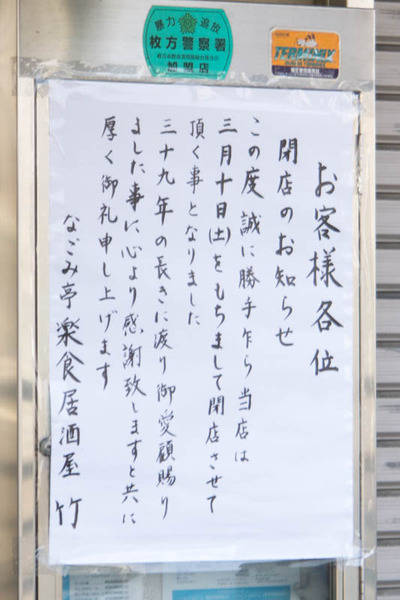 暴力追放
枚方警察署
加盟店
お客様各位
閉店のお知らせ
この度誠に勝手乍ら当店は
三月十日(土)をもちまして閉店させて
頂く事となりました
三十九年の長きに渡り御愛顧賜り
ました事に心より感謝致しますと共に
厚く御礼申し上げます
なごみ亭楽食居酒屋 竹